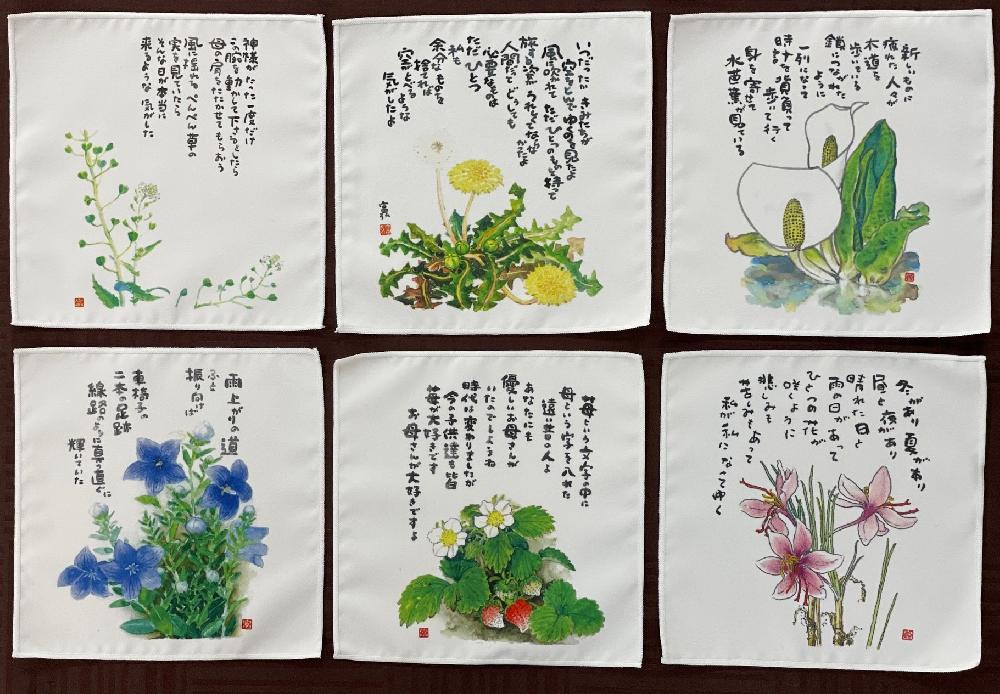 神様がたった一度だけ
この腕を動かして下さるとしたら
母の肩をたたかせてもらおう
風に揺れるぺんぺん草の
実を見ていたら
そんな日が本当に
来るような気がした
いつだったか きみたちが
空をとんでゆくのを見たよ
風に吹かれて ただひとつのものを持って
旅する姿が うれしくてならなかったよ
人間だって どうしても
必要なものは
ただひとつ
私も
余分なものを
捨てれば
空がとべるような
気がしたよ
富弘
新しいものに
疲れた人々が
木道を
歩いている
鎖につながれた
ように
一列になって
を背負って
歩いて行く
身を寄せて
水芭蕉が見ている
雨上がりの道
ふと
振り向けば
車椅子の
二本の足跡
線路のように真っ直ぐに
輝いていた
苺という文字の中に
母という字を入れた
遠い昔の人よ
あなたにも
優しいお母さんが
いたのでしょうね
時代は変わりましたが
今の子供達も皆
苺が大好きです
お母さんが大好きですよ
冬があり夏があり
昼と夜があり
晴れた日と
雨の日があって
ひとつの花が
咲くように
悲しみも
苦しみもあって
私が私になってゆく